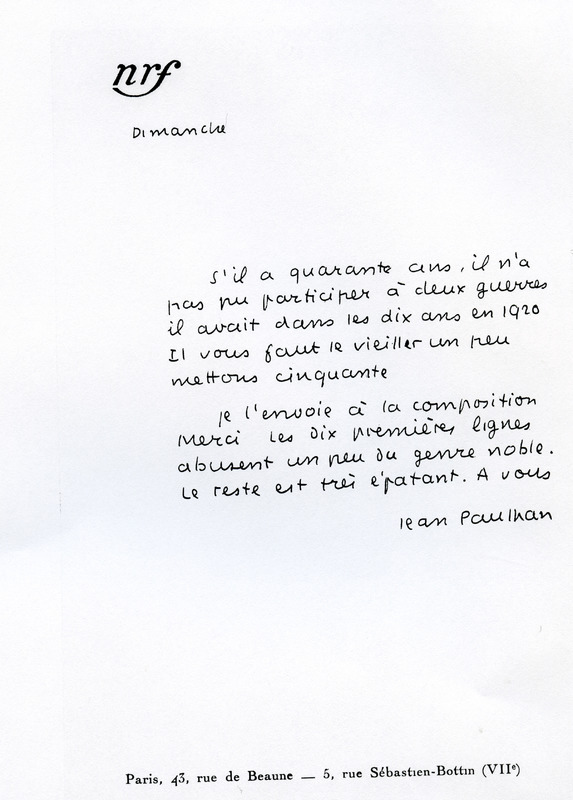 nrf
Dimanche
S'il a quarante ans, il n'a
pas pu participer à deux guerres
il avait dans les dix ans en 1920
Il vous faut le vieillir un peu
mettons cinquante
je l'envoie à la composition
Merci Les dix premières lignes
abusent un peu du genre noble.
Le reste est très épatant. A vous
Jean Paulhan
Paris, 43, rue de Beaune — 5, rue Sébastien-Bottin (VIIe)